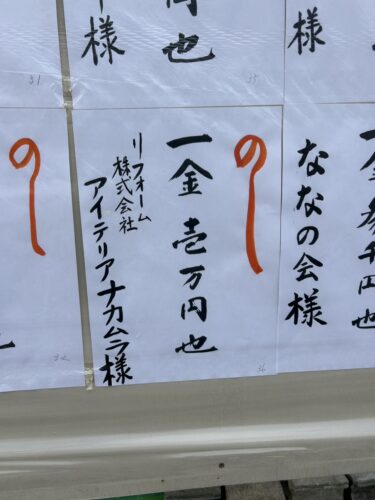 円也
様
31
35
様
の
一金 壱万円也
リフォーム
株式会社
アイテリアナカムラ様
36
の
一金 参千円也
ななの会様